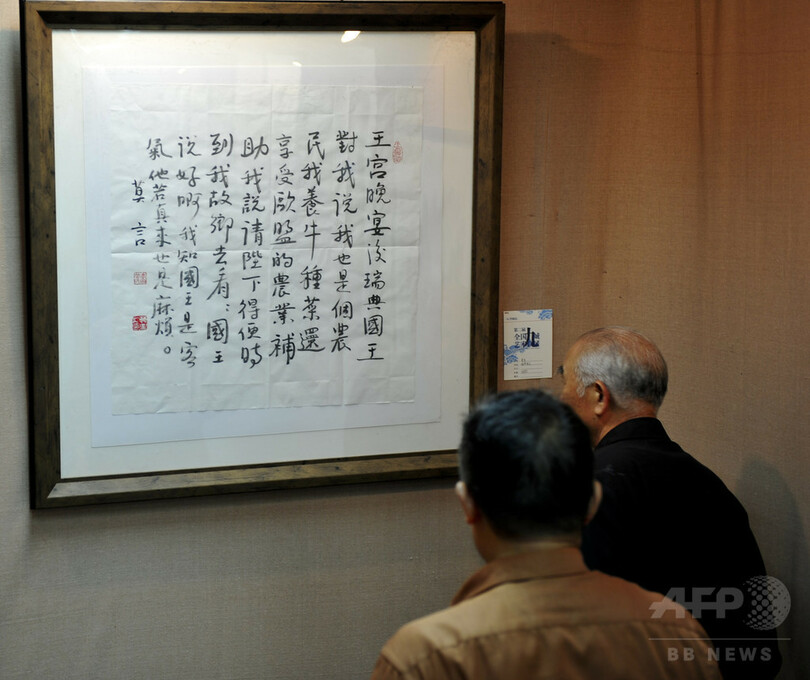 王宮晚宴後瑞典國王
對我说我也是個農
民我養牛種菜還
享受欧盟的農業補
助我説請陛下得便時
到我故鄉去看：國王
说好啊我知國王是客
氣他若真来也是麻煩。
莫言
九
AFP
BB NEWS